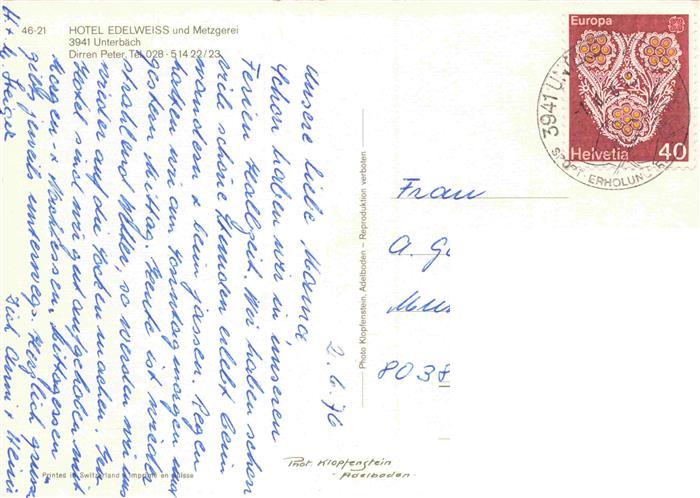 46-21 HOTEL EDELWEISS und Metzgerei
3941 Unterbäch
Dirren Peter, Tel. 028 - 5 14 22 / 23
2.6.76
Unsere liebe Mama,
Schon haben wir in unseren
Ferien Halbzeit. Wir haben schon
viel schöne Stunden erlebt beim
wandern & beim jassen. Regen
hatten wir am Sonntagmorgen und
gestern Mittag. Heute ist wieder
strahlend Wetter, so werden wir uns
wieder auf die Socken machen. Im
Hotel sind wir gut aufgehoben mit
Morgen- & Nachtessen, Mittagessen
gibts jeweils unterwegs. Herzlich grüssen
Anni & Heini
H. & M. Steiger
Photo Klopfenstein, Adelboden – Reproduktion verboten
Printed in Switzerland • Imprimé en Suisse
Phot. Klopfenstein
-Adelboden-
Europa
Helvetia 40
3941 UN
SPORT-ERHOLUN
Frau
A. G
8038